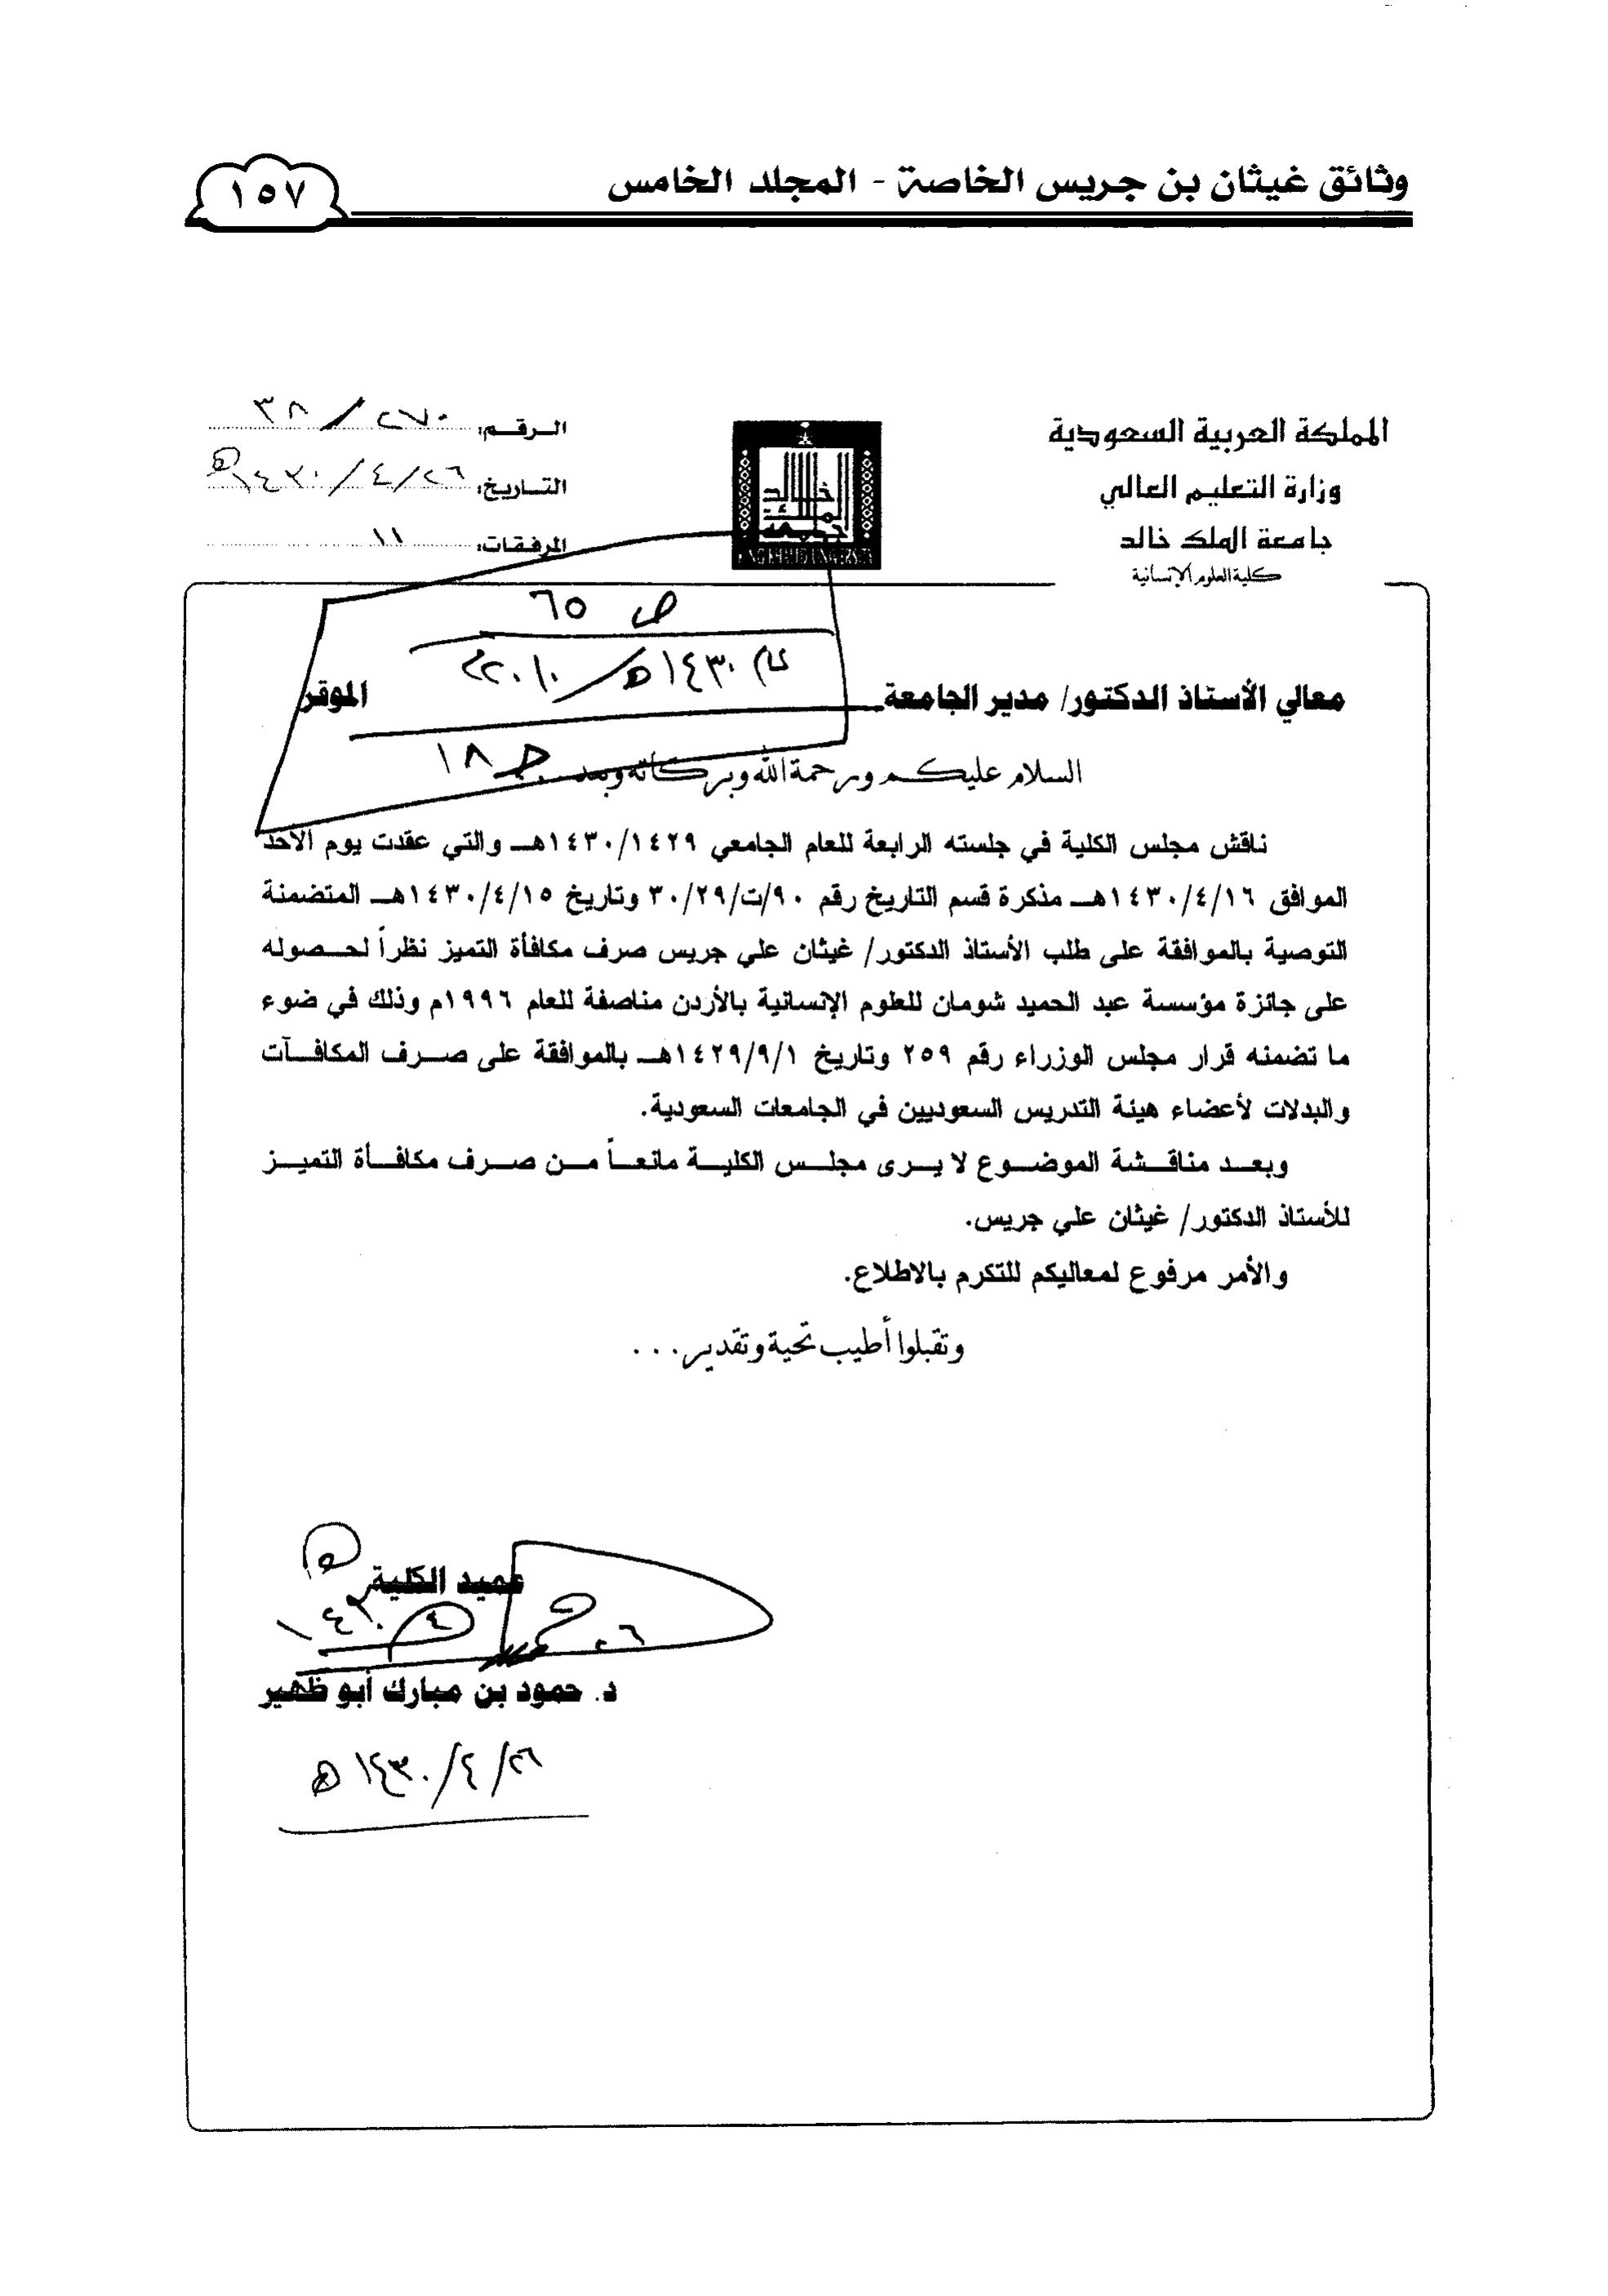 وثائق غيثان بن جريس الخاصة - المجلد الخامس
١٥٧
المملكة العربية السعودية
وزارة التعليم العالي
جامعة الملك خالد
كلية العلوم الإنسانية
الرقم: ٣٨/٢٧٠
التاريخ: ١٤٣٠/٤/٢٦هـ
المرفقات: ١١
ص ٦٥
١٤٣٠هـ/٢٠١٠م
ج ١٨
معالي الأستاذ الدكتور/ مدير الجامعة الموقر
السلام عليكم ورحمة الله وبركاته وبعد
ناقش مجلس الكلية في جلسته الرابعة للعام الجامعي ١٤٣٠/١٤٢٩هـ والتي عقدت يوم الأحد
الموافق ١٤٣٠/٤/١٦هـ مذكرة قسم التاريخ رقم ٩٠/ت/٣٠/٢٩ وتاريخ ١٤٣٠/٤/١٥هـ المتضمنة
التوصية بالموافقة على طلب الأستاذ الدكتور/ غيثان علي جريس صرف مكافأة التميز نظراً لحصوله
على جائزة مؤسسة عبد الحميد شومان للعلوم الإنسانية بالأردن مناصفة للعام ١٩٩٦م وذلك في ضوء
ما تضمنه قرار مجلس الوزراء رقم ٢٥٩ وتاريخ ١٤٢٩/٩/١هـ بالموافقة على صرف المكافآت
والبدلات لأعضاء هيئة التدريس السعوديين في الجامعات السعودية.
وبعد مناقشة الموضوع لا يرى مجلس الكلية مانعاً من صرف مكافأة التميز
للأستاذ الدكتور/ غيثان علي جريس.
والأمر مرفوع لمعاليكم للتكرم بالاطلاع.
وتقبلوا أطيب تحية وتقدير...
عميد الكلية
د. حمود بن مبارك أبو ظهير
١٤٣٠/٤/٢٦هـ